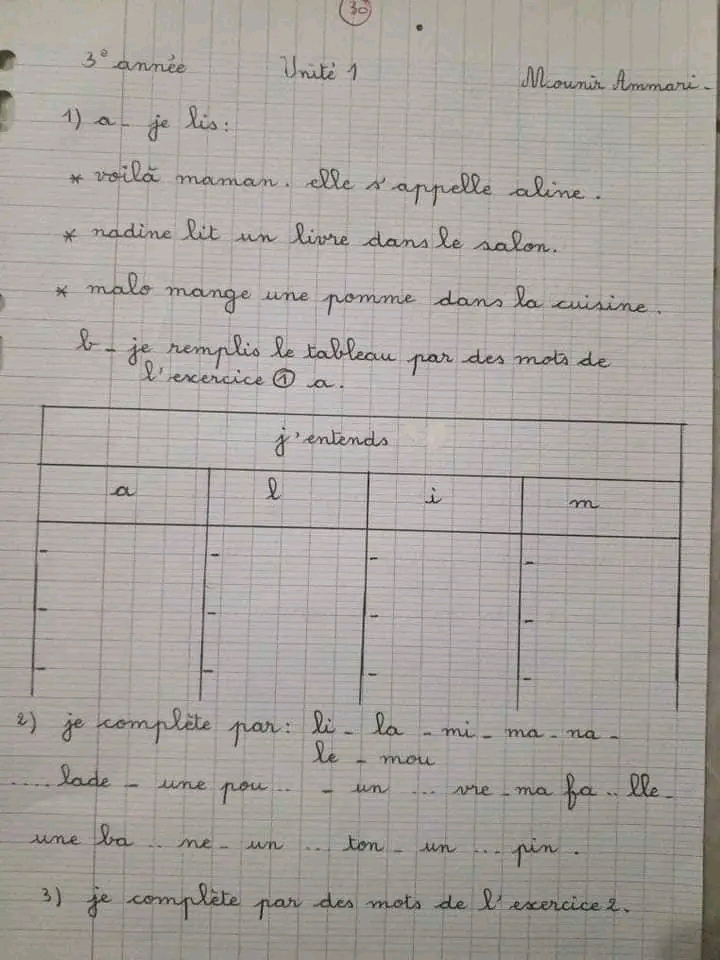 30
3° année Unité 1 Mounir Ammari -
1) a - je lis :
* voilà maman. elle s'appelle aline.
* nadine lit un livre dans le salon.
* malo mange une pomme dans la cuisine.
b - je remplis le tableau par des mots de
l'exercice ① a.
j'entends
a l i m
- - - -
- - - -
- - - -
2) je complète par : li - la - mi - ma - na -
le - mou
.... lade - une pou .. - un ... vre - ma fa .. lle -
une ba .. ne - un ... ton - un ... pin.
3) je complète par des mots de l'exercice 2.